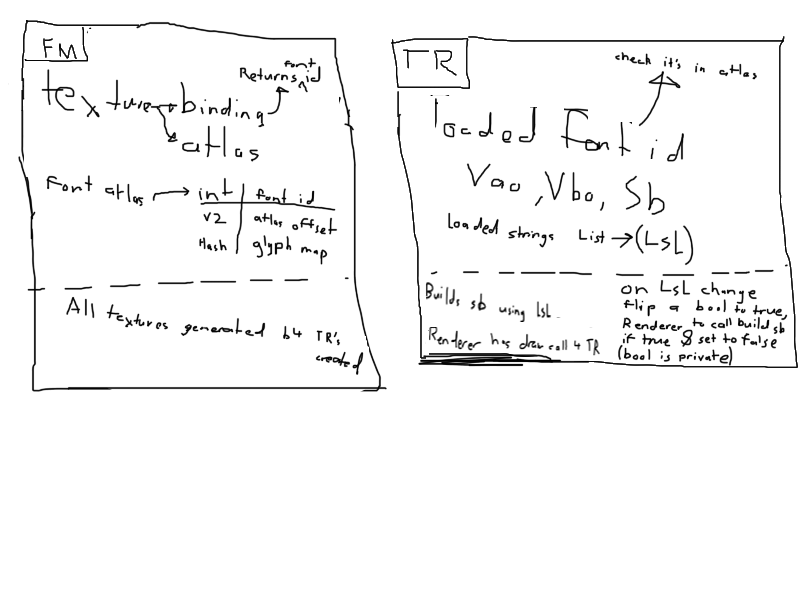 FM
font
Returns id
texture binding
atlas
Font atlas int font id
v2 atlas offset
Hash glyph map
All textures generated b4 TR's
created
TR
check it's in atlas
loaded Font id
Vao, Vbo, Sb
loaded strings List → (LsL)
Builds sb using lsl.
Renderer has draw call 4 TR
on LsL change
flip a bool to true,
Renderer to call build sb
if true & set to false
(bool is private)